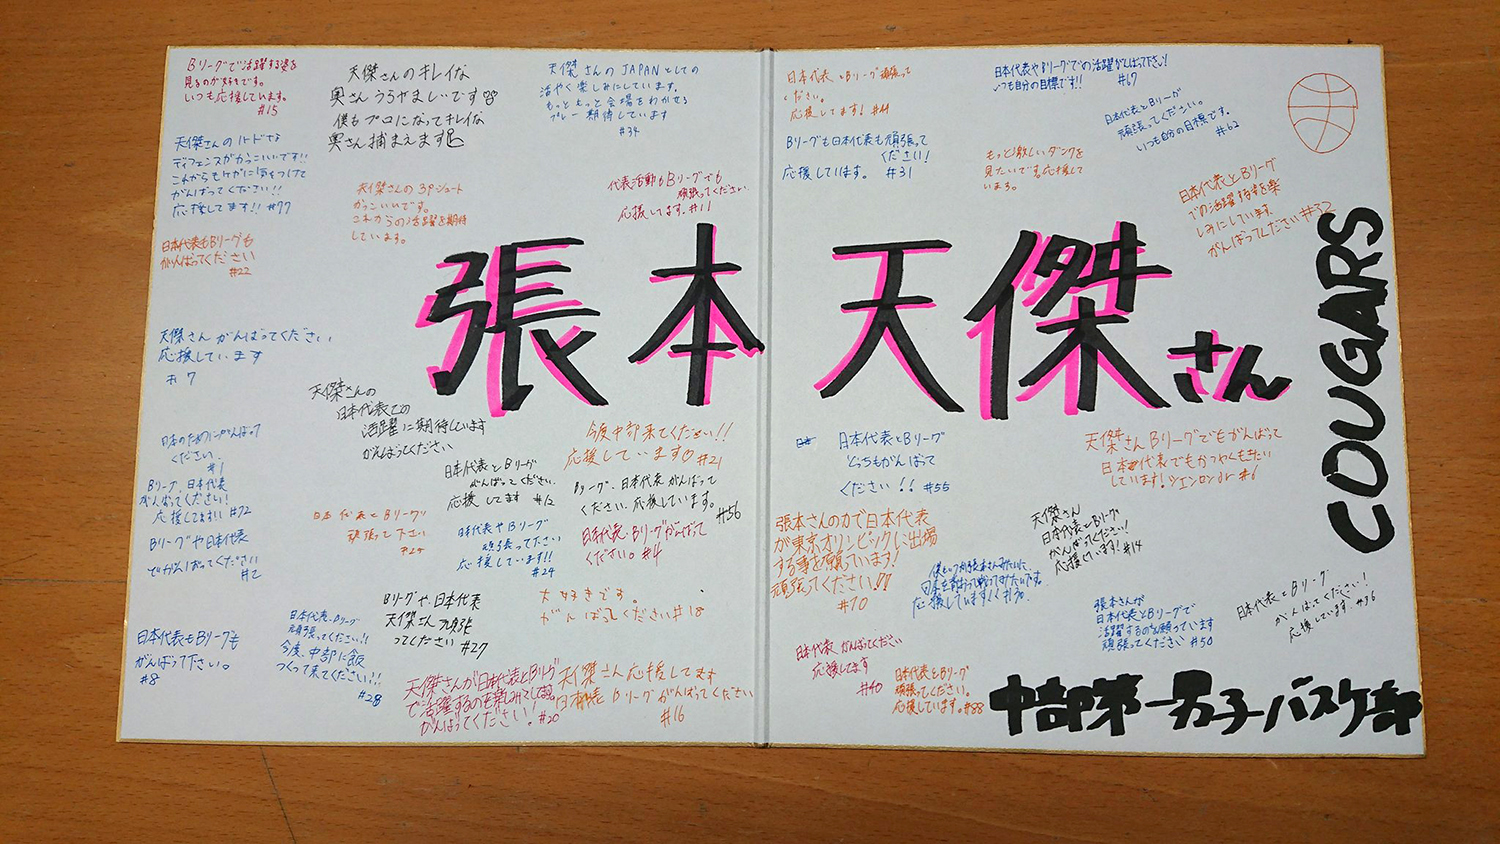 Bリーグで活躍する姿を
見るのが好きです。
いつも応援しています。
#15
天傑さんのキレイな
奥さんうらやましいです
僕もプロになってキレイな
奥さん捕まえます
天傑さんのJAPANとしての
活やく楽しみにしています。
もっともっと会場をわかせる
プレー期待しています
#34
天傑さんのハードな
ディフェンスがかっこいいです!!
これからもケガに気をつけて
がんばってください!!
応援してます!! #77
天傑さんの3Pシュート
かっこいいです。
これからの活躍を期待
しています。
代表活動もBリーグでも
頑張ってください
応援してます。#11
日本代表もBリーグも
がんばってください
#22
天傑さんがんばってください
応援しています
#7
天傑さんの
日本代表での
活躍に期待しています
がんばってください
日本のためにがんばって
ください.
#1
Bリーグ、日本代表
がんばってください!
応援してます!! #72
Bリーグや日本代表
でがんばってください
#2
日本代表とBリーグ
頑張って下さい
日本代表とBリーグ
がんばってください
応援してます #12
日本代表やBリーグ
頑張って下さい
応援しています!!
#24
今度中部来てください!!
応援しています♡ #21
Bリーグ、日本代表がんばって
ください。応援しています。
#56
日本代表、Bリーグがんばって
ください。#4
大好きです。
がんばってください#18
日本代表もBリーグも
がんばって下さい。
#8
日本代表、Bリーグ
頑張ってください!!
今度、中部に飯
つくって来てください!!
#28
Bリーグや、日本代表
天傑さん頑張
ってください #27
天傑さんが日本代表とBリーグ
で活躍するのを楽しみにしてます
がんばってください! #20
天傑さん応援してます
日本代表とBリーグがんばってください
#16
張本天傑さん
日本代表、Bリーグ頑張って
ください。
応援してます! #44
Bリーグも日本代表も頑張って
ください!
応援してます。#31
日本代表やBリーグでの活躍がんばって下さい!
いつも自分の目標です!! #67
もっと激しいダンクを
見たいです。応援して
います。
日本代表とBリーグ
頑張ってください。
いつも自分の目標です。
#62
日本代表とBリーグ
での活躍する姿を楽
しみにしています。
がんばってください #32
COUGARS
日本代表とBリーグ
どっちもがんばって
ください!! #55
天傑さんBリーグでもがんばって
日本代表でもかつやくをきたい
しています! シェンロンより #6
張本さんの力で日本代表
が東京オリンピックに出場
する事を願っています!
頑張ってください!! #10
応援しています!
天傑さん
日本代表とBリーグ
がんばってください!
応援しています! #14
日本代表がんばってください
応援してます
#40
日本代表とBリーグ
頑張ってください。
応援しています。#88
張本さんが
日本代表とBリーグで
活躍するのを願っています
頑張ってください #50
日本代表とBリーグ
がんばってください!
応援しています。#36
中部第一男子バスケ部